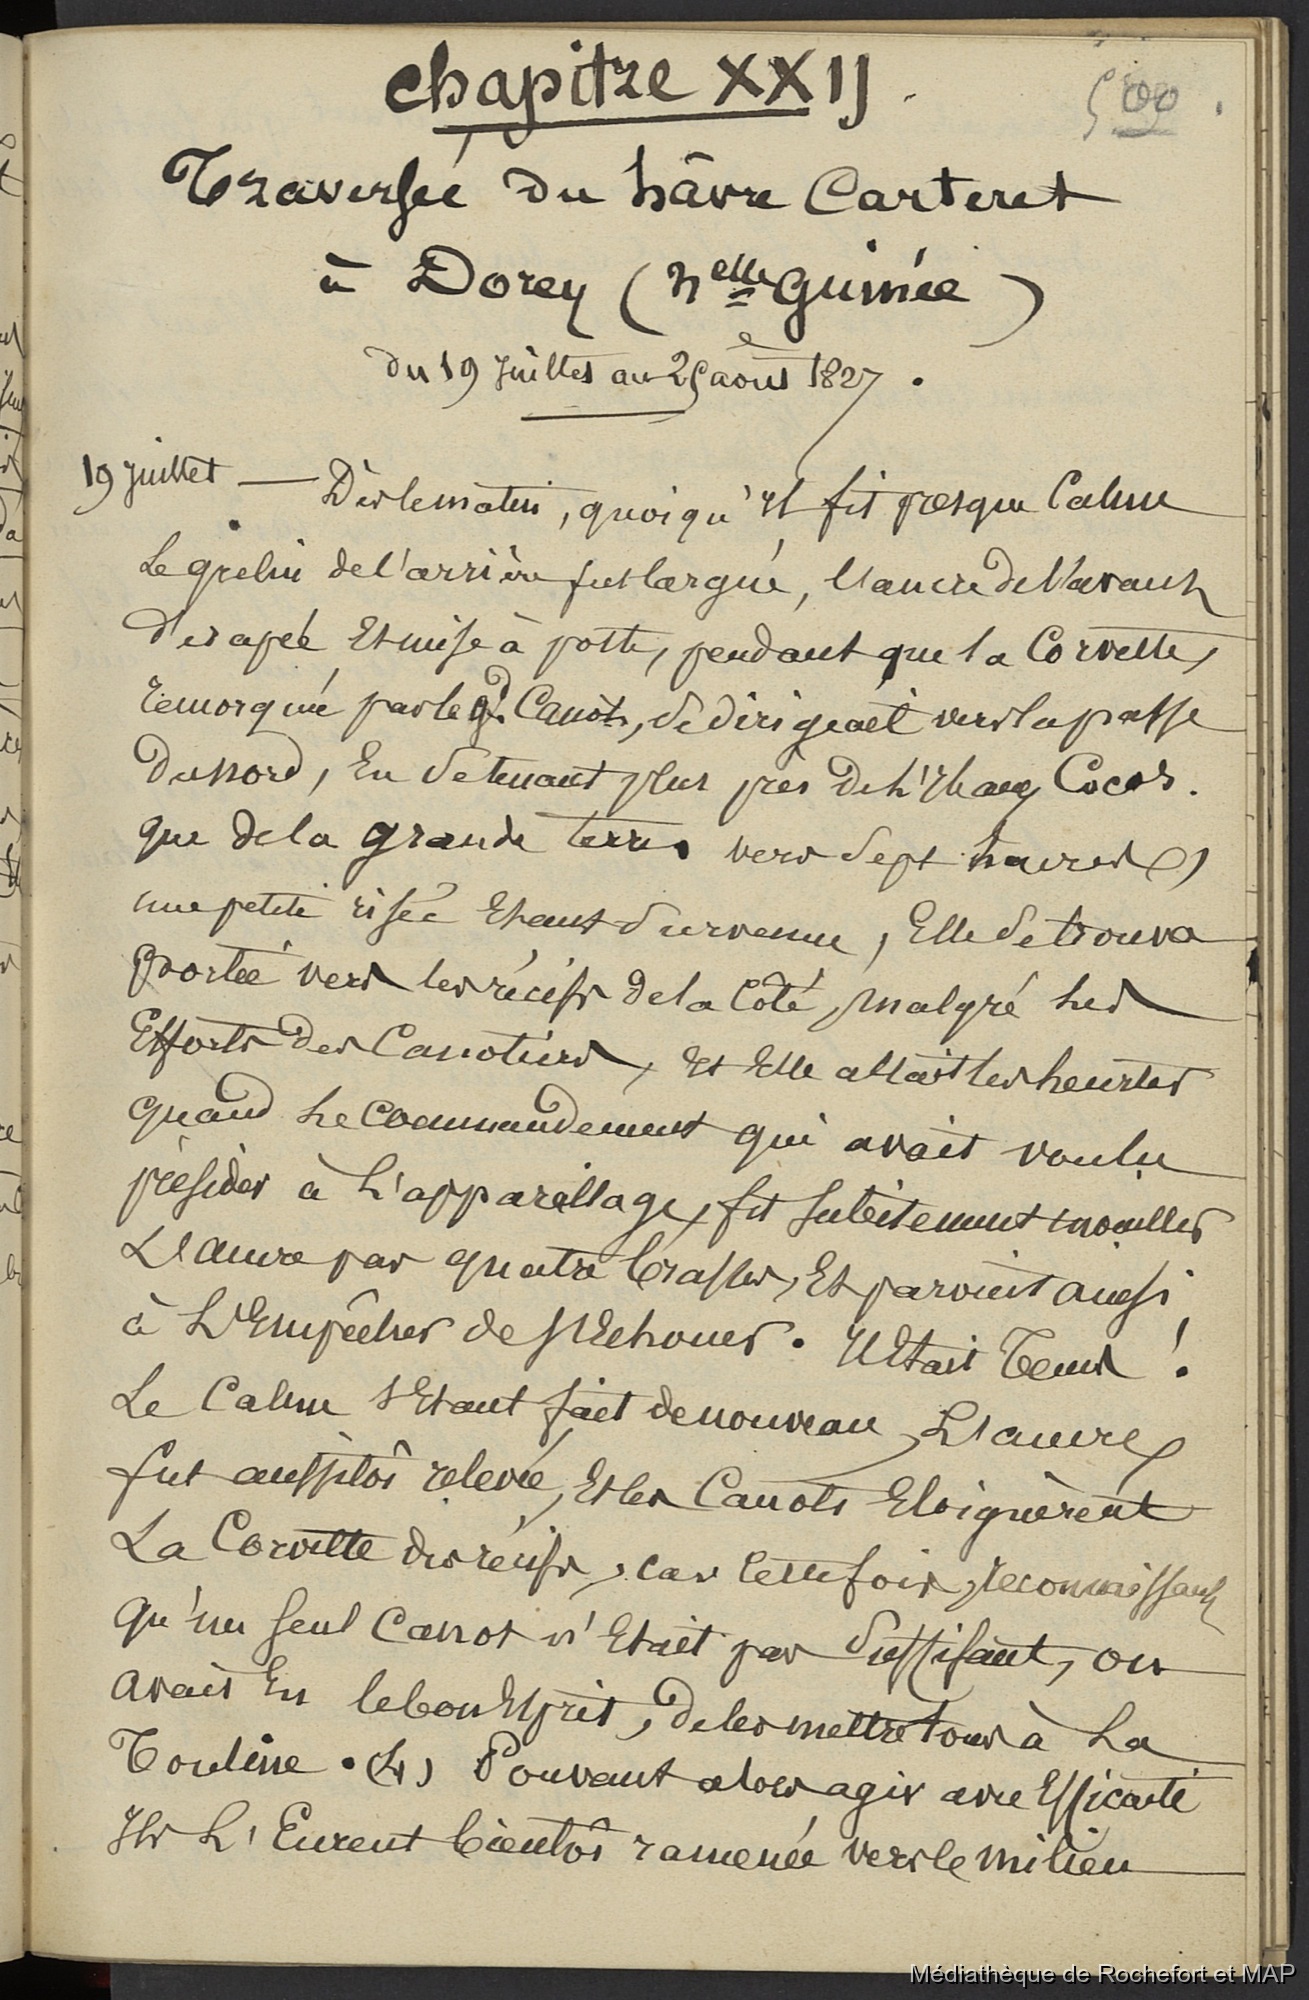 Chapitre XXIJ.
500.
Traversée du hâvre Carteret
à Dorey (Nelle Guinée)
du 19 Juillet au 25 août 1827.
19 Juillet — Dès le matin, quoiqu'il fit presque Calme
Le grelin de l'arrière fut largué, l'ancre de l'avant
dérapée Et mise à poste, pendant que la Corvette,
remorquée par le gd Canot, se dirigeait vers la passe
du nord, En se tenant plus près de l'Ile aux Cocos.
que de la grande terre. vers sept heures,
une petite risée Etant survenue, Elle se trouva
portée vers les récifs de la Côte, malgré les
Efforts des Canotiers, Et Elle allait les heurter
quand Le Commandement qui avait voulu
présider à L'appareillage, fit subitement mouiller
L'ancre par quatre brasses, Et parvint ainsi,
à L'Empêcher de s'Echouer. Il Etait Tems !.
Le Calme s'Etant fait de nouveau, L'ancre
fut aussitôt relevée, Et les Canots Eloignèrent
La Corvette des récifs, car cette fois, reconnaissant
qu'un seul Canot n'Etait pas suffisant, on
avait Eu le bon Esprit, de les mettre tous à La
Touline. (1) Pouvant alors agir avec Efficacité
Ils L'Eurent bientôt ramenée vers le milieu
Médiathèque de Rochefort et MAP